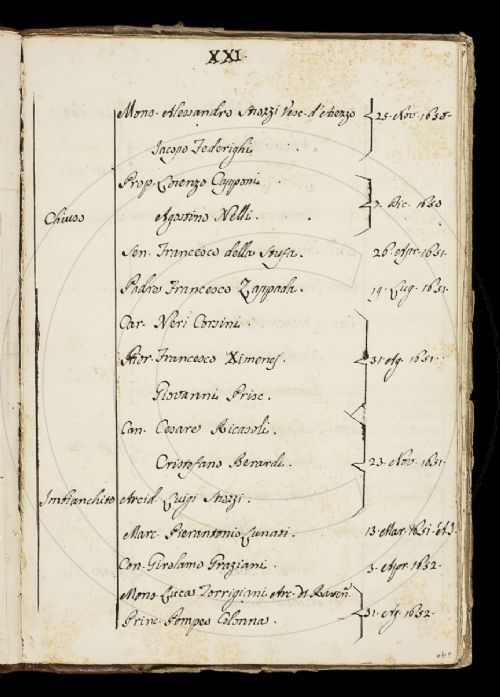 XXI
Mons. Alessandro Strozzi Vesc. d'Arezzo 25. Nov. 1650.
Iacopo Federighi
Prop. Lorenzo Capponi
Chiuso Agostino Nelli. 7. Dic. 1650
Sen. Francesco della Stufa. 26. Apr. 1651.
Padre Francesco Zappada. 19. Lug. 1651.
Car. Neri Corsini.
Prior. Francesco Ximenes. 31. Ag. 1651.
Giovanni Prisc.
Can. Cesare Ricasoli.
Cristofano Berardi. 23. Nov. 1651.
Infianchito Arcid. Luigi Strozzi.
Marc. Pierantonio Lunati. 13. Mar. 1651.
Con. Girolamo Graziani. 3. Apr. 1652.
Mons. Lucas Torrigiani Arc. di Raven.
Prin. Pompeo Colonna. 31. Ag. 1652.